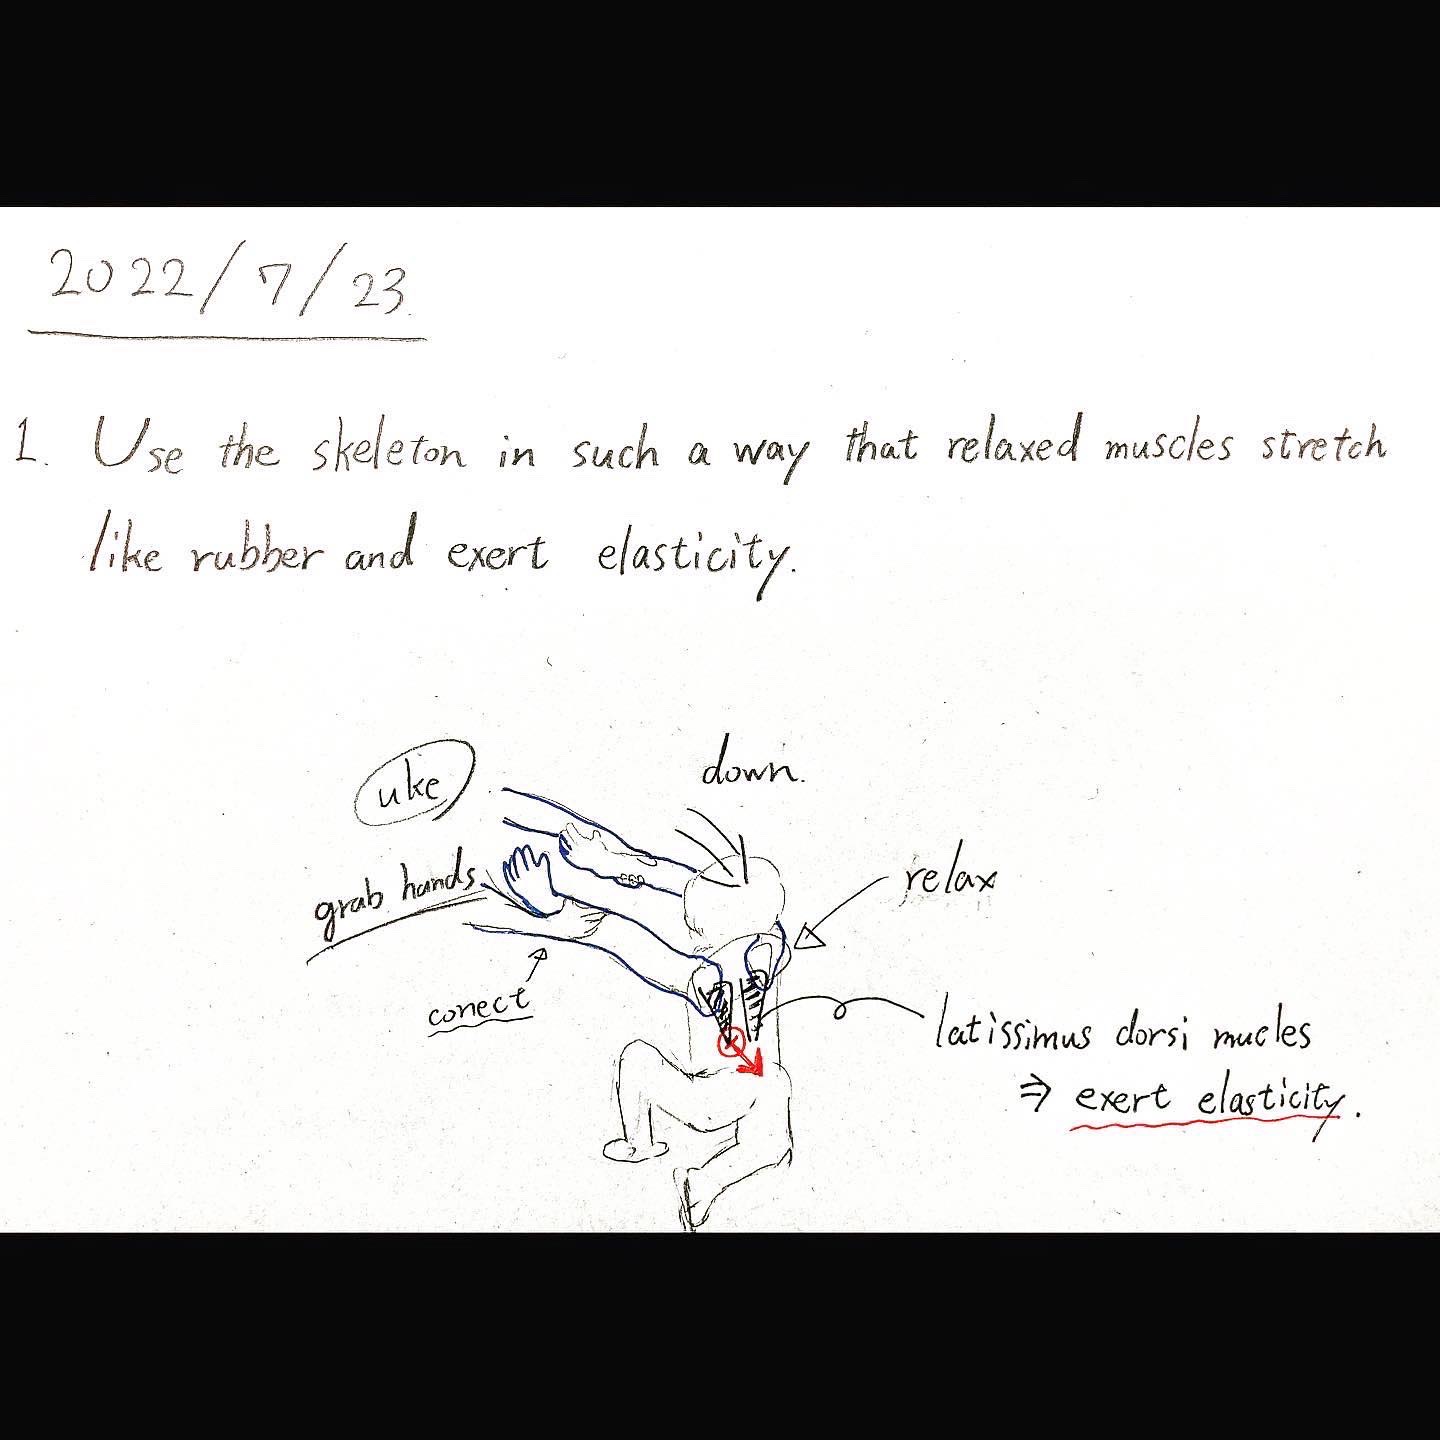 2022/7/23.
1. Use the skeleton in such a way that relaxed muscles stretch
like rubber and exert elasticity.
uke
down.
grab hands
relax
conect
latissimus dorsi mucles
⇒ exert elasticity.